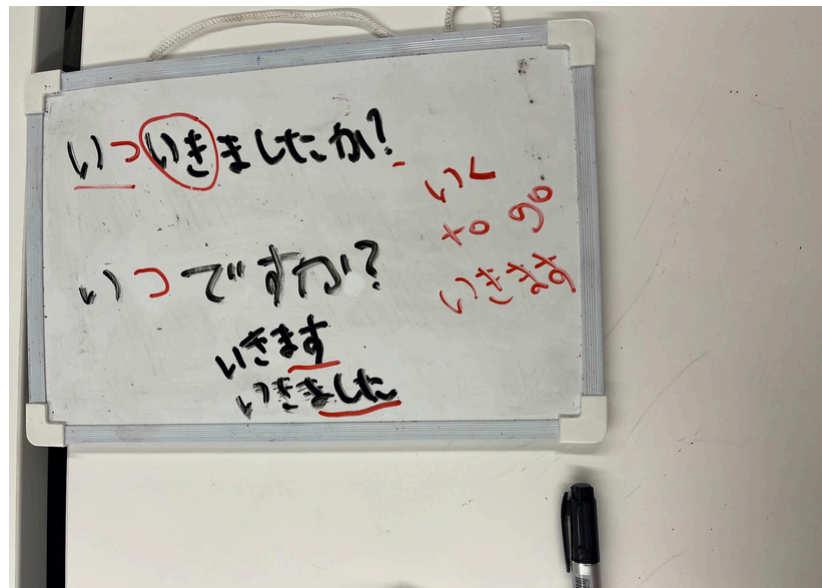 いついきましたか?
いつですか?
いきます
いきました
いく
to go
いきます